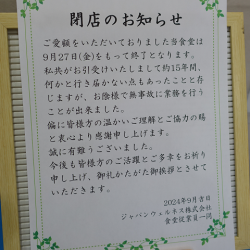 閉店のお知らせ
ご愛顧をいただいておりました当食堂は
9月27日(金)をもって終了となります。
私共がお引受けいたしまして約15年間、
何かと行き届かない点もあったことと存
じますが、お陰様で無事故に業務を行う
ことが出来ました。
偏に皆様方の温かいご理解とご協力の賜
と衷心より感謝申し上げます。
誠に有難うございました。
今後も皆様方のご活躍とご多幸をお祈り
申し上げ、御礼かたがた御挨拶とさせて
いただきます。
2024年9月吉日
ジャパンウェルネス株式会社
食堂従業員一同